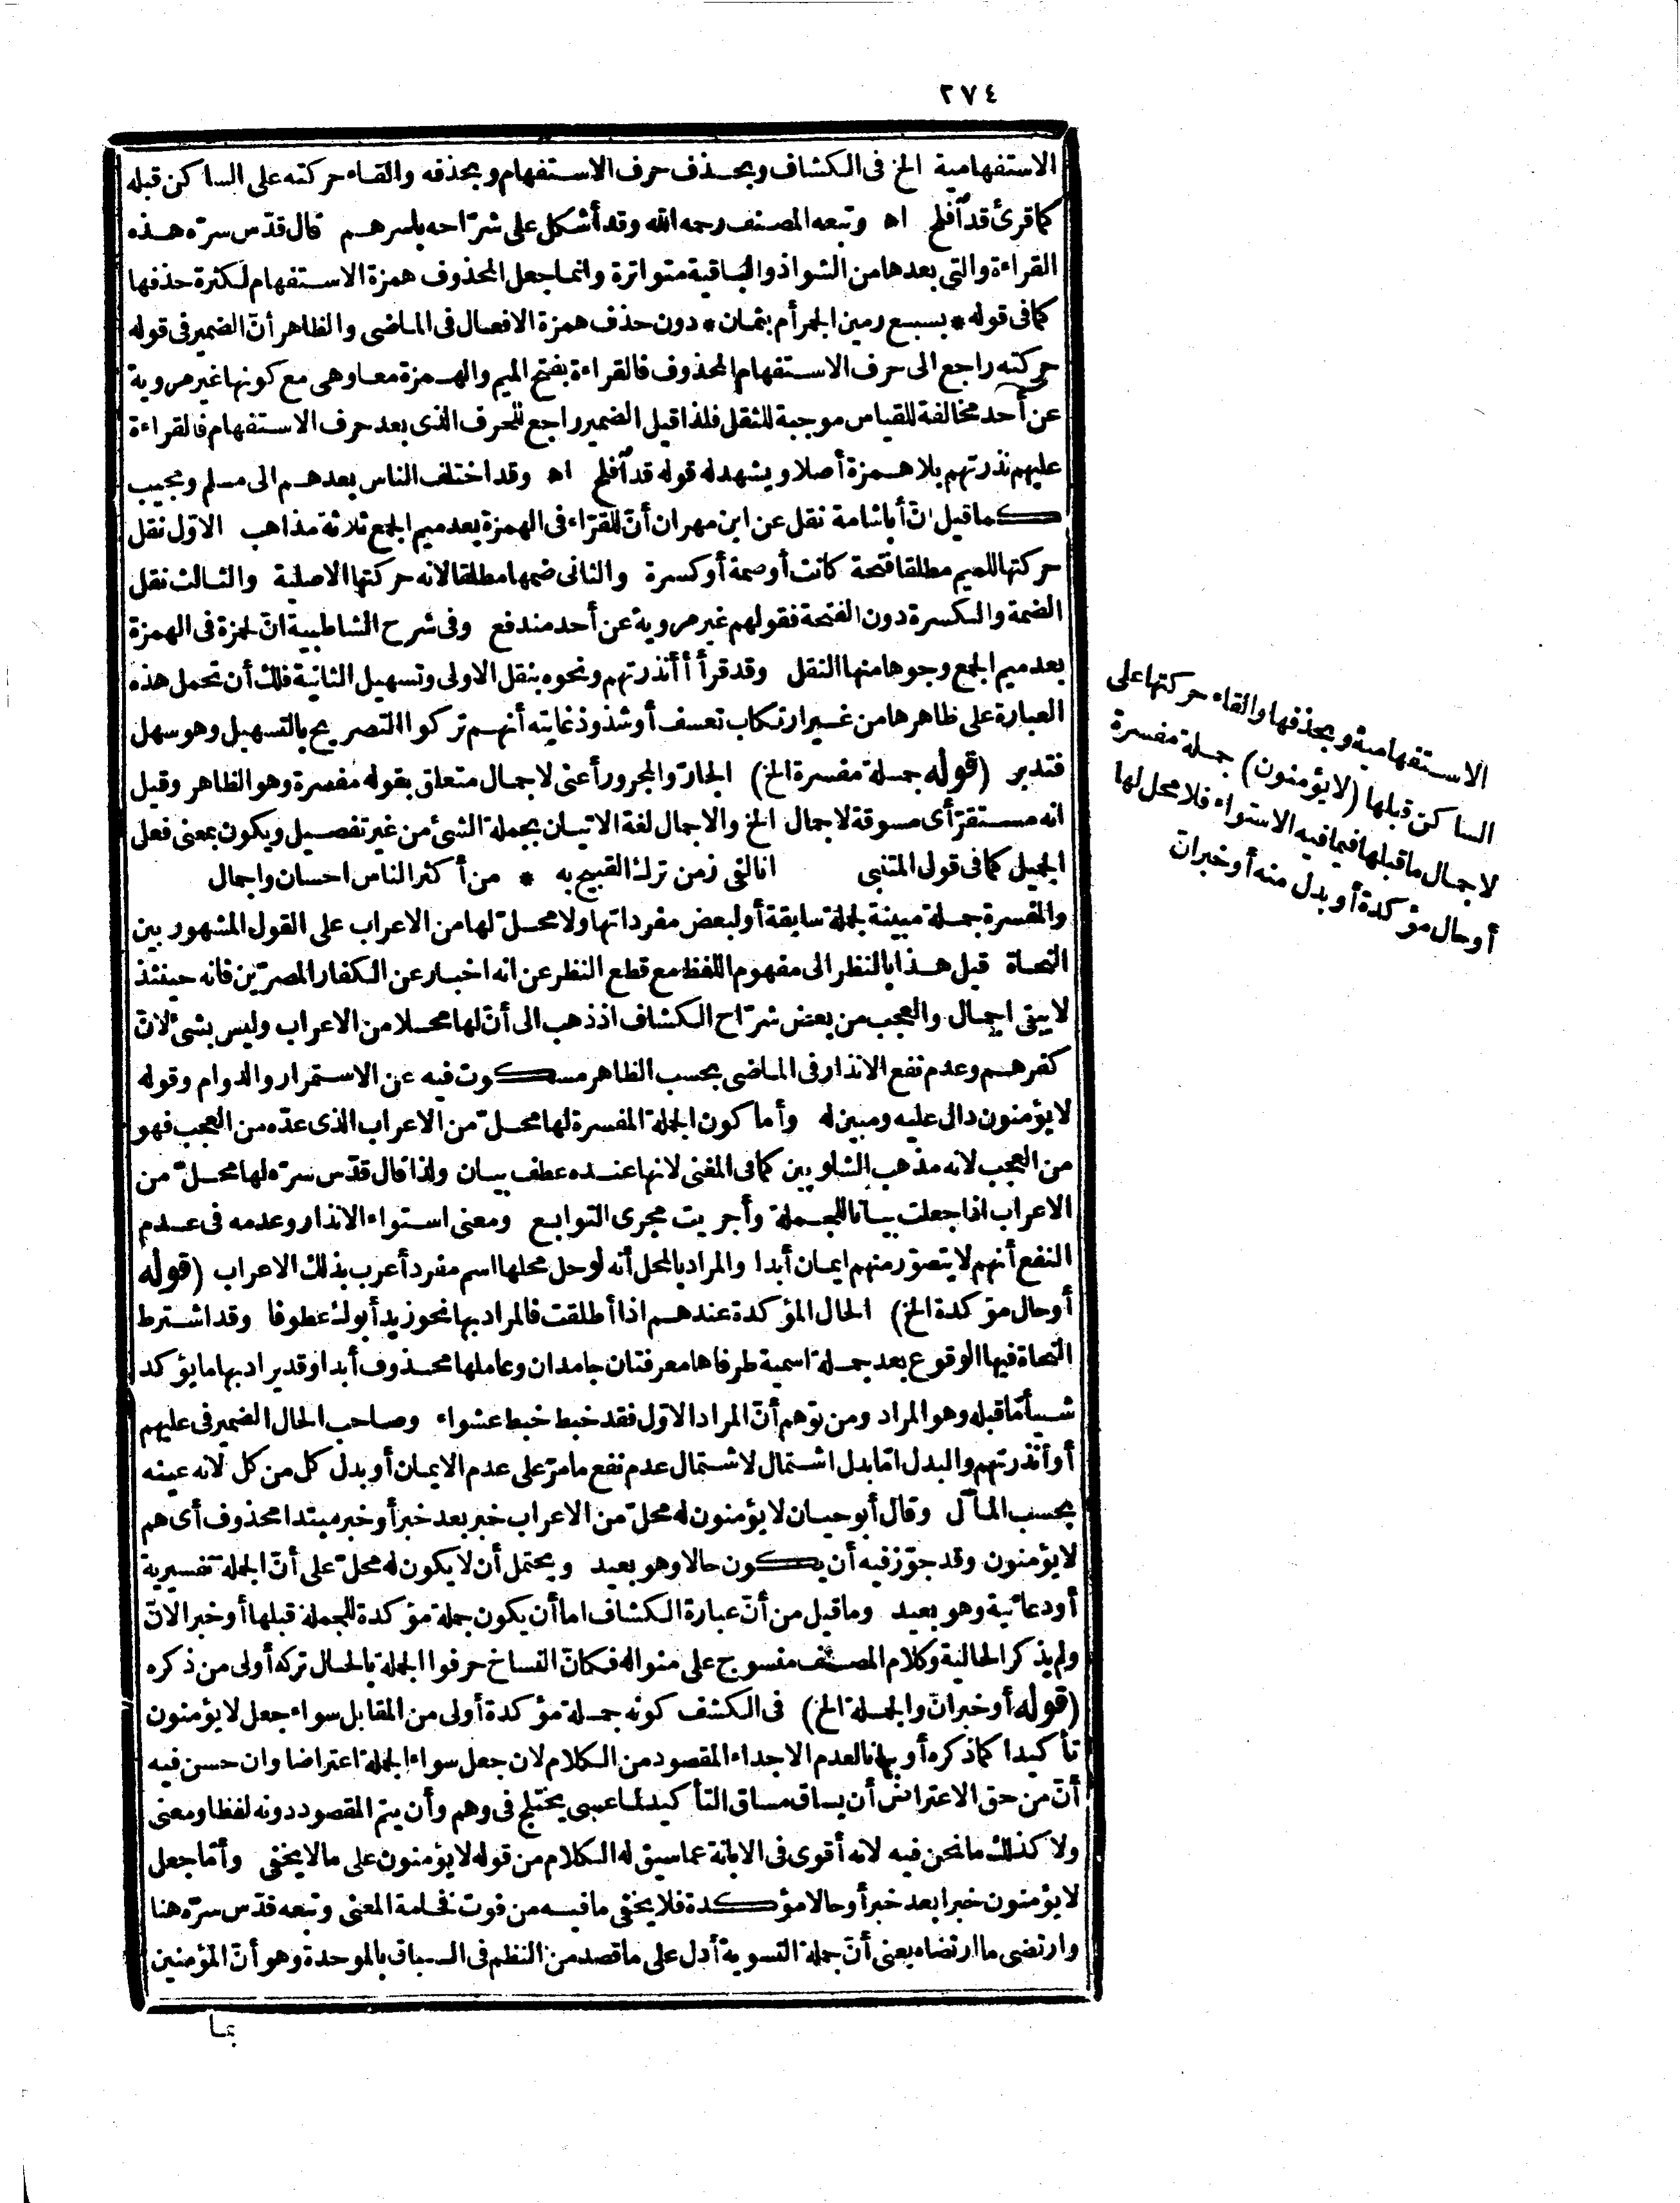 ٢٧٤
الاستفهامية الخ فى الكشاف وبحذف حرف الاستفهام وبحذفه والقاء حركته على الساكن قبله
كما قرئ قد أفلح اه وتبعه المصنف رحمه الله وقد أشكل على شرّاحه بأسرهم قال قدّس سرّه هذه
القراءة والتى بعدها من الشواذ والباقية متواترة وانما جعل المحذوف همزة الاستفهام لكثرة حذفها
كما فى قوله * بسبع رمين الجمر أم بثمان * دون حذف همزة الافعال فى الماضى والظاهر أنّ الضمير فى قوله
حركته راجع الى حرف الاستفهام المحذوف فالقراءة بفتح الميم والهمزة معا وهى مع كونها غير مروية
عن أحد مخالفة للقياس موجبة للثقل فلذا قيل الضمير راجع للحرف الذى بعد حرف الاستفهام فالقراءة
عليهم نذرتهم بلا همزة أصلا ويشهد له قوله قد أفلح اه وقد اختلف الناس بعدهم الى مسلم ومجيب
كما قيل انّ أبا شامة نقل عن ابن مهران أنّ للقرّاء فى الهمزة بعد ميم الجمع ثلاثة مذاهب الاوّل نقل
حركتها للميم مطلقا فتحة كانت أو ضمة أو كسرة والثانى ضمها مطلقا لانه حركتها الاصلية والثالث نقل
الضمة والكسرة دون الفتحة فقولهم غير مروية عن أحد مندفع وفى شرح الشاطبية انّ لحمزة فى الهمزة
بعد ميم الجمع وجوها منها النقل وقد قرأ أأنذرتهم ونحوه بنقل الاولى وتسهيل الثانية فلك أن تحمل هذه
العبارة على ظاهرها من غير ارتكاب تعسف أو شذوذ غايته أنهم تركوا التصريح بالتسهيل وهو سهل
فتدبر (قوله جملة مفسرة الخ) الجارّ والمجرور أعنى لاجمال متعلق بقوله مفسرة وهو الظاهر وقيل
انه مستقرّ أى مسوقة لاجمال الخ والاجمال لغة الاتيان بجملة الشئ من غير تفصيل ويكون بمعنى فعل
الجميل كما فى قول المتنبى انا لفى زمن ترك القبيح به * من أكثر الناس احسان واجمال
والمفسرة جملة مبينة لجملة سابقة أو لبعض مفرداتها ولا محلّ لها من الاعراب على القول المشهور بين
النحاة قيل هذا بالنظر الى مفهوم اللفظ مع قطع النظر عن انه اخبار عن الكفار المصرّين فانه حينئذ
لا يبقى اجمال والعجب من بعض شرّاح الكشاف اذ ذهب الى أنّ لها محلا من الاعراب وليس بشئ لانّ
كفرهم وعدم نفع الانذار فى الماضى بحسب الظاهر مسكوت فيه عن الاستمرار والدوام وقوله
لا يؤمنون دال عليه ومبين له وأما كون الجملة المفسرة لها محلّ من الاعراب الذى عدّه من العجب فهو
من العجب لانه مذهب الشلوبين كما فى المغنى لانها عنده عطف بيان ولذا قال قدّس سرّه لها محلّ من
الاعراب اذا جعلت بيانا للجملة وأجريت مجرى التوابع ومعنى استواء الانذار وعدمه فى عدم
النفع أنهم لا يتصوّر منهم ايمان أبدا والمراد بالمحل أنه لو حل محلها اسم مفرد أعرب بذلك الاعراب (قوله
أو حال مؤكدة الخ) الحال المؤكدة عندهم اذا أطلقت فالمراد بها نحو زيد أبوك عطوفا وقد اشترط
النحاة فيها الوقوع بعد جملة اسمية طرفاها معرفتان جامدان وعاملها محذوف أبدا وقد يراد بها ما يؤكد
شيأ مّا قبله وهو المراد ومن توهم أنّ المراد الاوّل فقد خبط خبط عشواء وصاحب الحال الضمير فى عليهم
أو أنذرتهم والبدل امّا بدل اشتمال لاشتمال عدم نفع ما مرّ على عدم الايمان أو بدل كل من كل لانه عينه
بحسب المآل وقال أبو حيان لا يؤمنون له محلّ من الاعراب خبر بعد خبر أو خبر مبتدا محذوف أى هم
لا يؤمنون وقد جوّز فيه أن يكون حالا وهو بعيد ويحتمل أن لا يكون له محلّ على أنّ الجملة تفسيرية
أو دعائية وهو بعيد وما قيل من أنّ عبارة الكشاف اما أن يكون جملة مؤكدة للجملة قبلها أو خبرا لانّ
ولم يذكر الحالية وكلام المصنف منسوج على منواله فكانّ النساخ حرفوا الجملة بالحال تركه أولى من ذكره
(قوله أو خبر انّ والجملة الخ) فى الكشف كونه جملة مؤكدة أولى من المقابل سواء جعل لا يؤمنون
تأكيدا كما ذكره أو بيانا لعدم الاجداء المقصود من الكلام لان جعل سواء الجملة اعتراضا وان حسن فيه
أنّ من حق الاعتراض أن يساق مساق التأكيد لما عسى يختلج فى وهم وأن يتم المقصود دونه لفظا ومعنى
ولا كذلك ما نحن فيه لانه أقوى فى الابانة عما سيق له الكلام من قوله لا يؤمنون على ما لا يخفى وأمّا جعل
لا يؤمنون خبرا بعد خبر أو حالا مؤكدة فلا يخفى ما فيه من فوت فخامة المعنى وتبعه قدّس سرّه هنا
وارتضى ما ارتضاه يعنى أنّ جملة التسوية أدل على ما قصد من النظم فى السباق بالموحدة وهو أنّ المؤمنين
بما
الاستفهامية وبحذفها والقاء حركتها على
الساكن قبلها (لا يؤمنون) جملة مفسرة
لاجمال ما قبلها فيما فيه الاستواء فلا محل لها
أو حال مؤكدة أو بدل منه أو خبر انّ